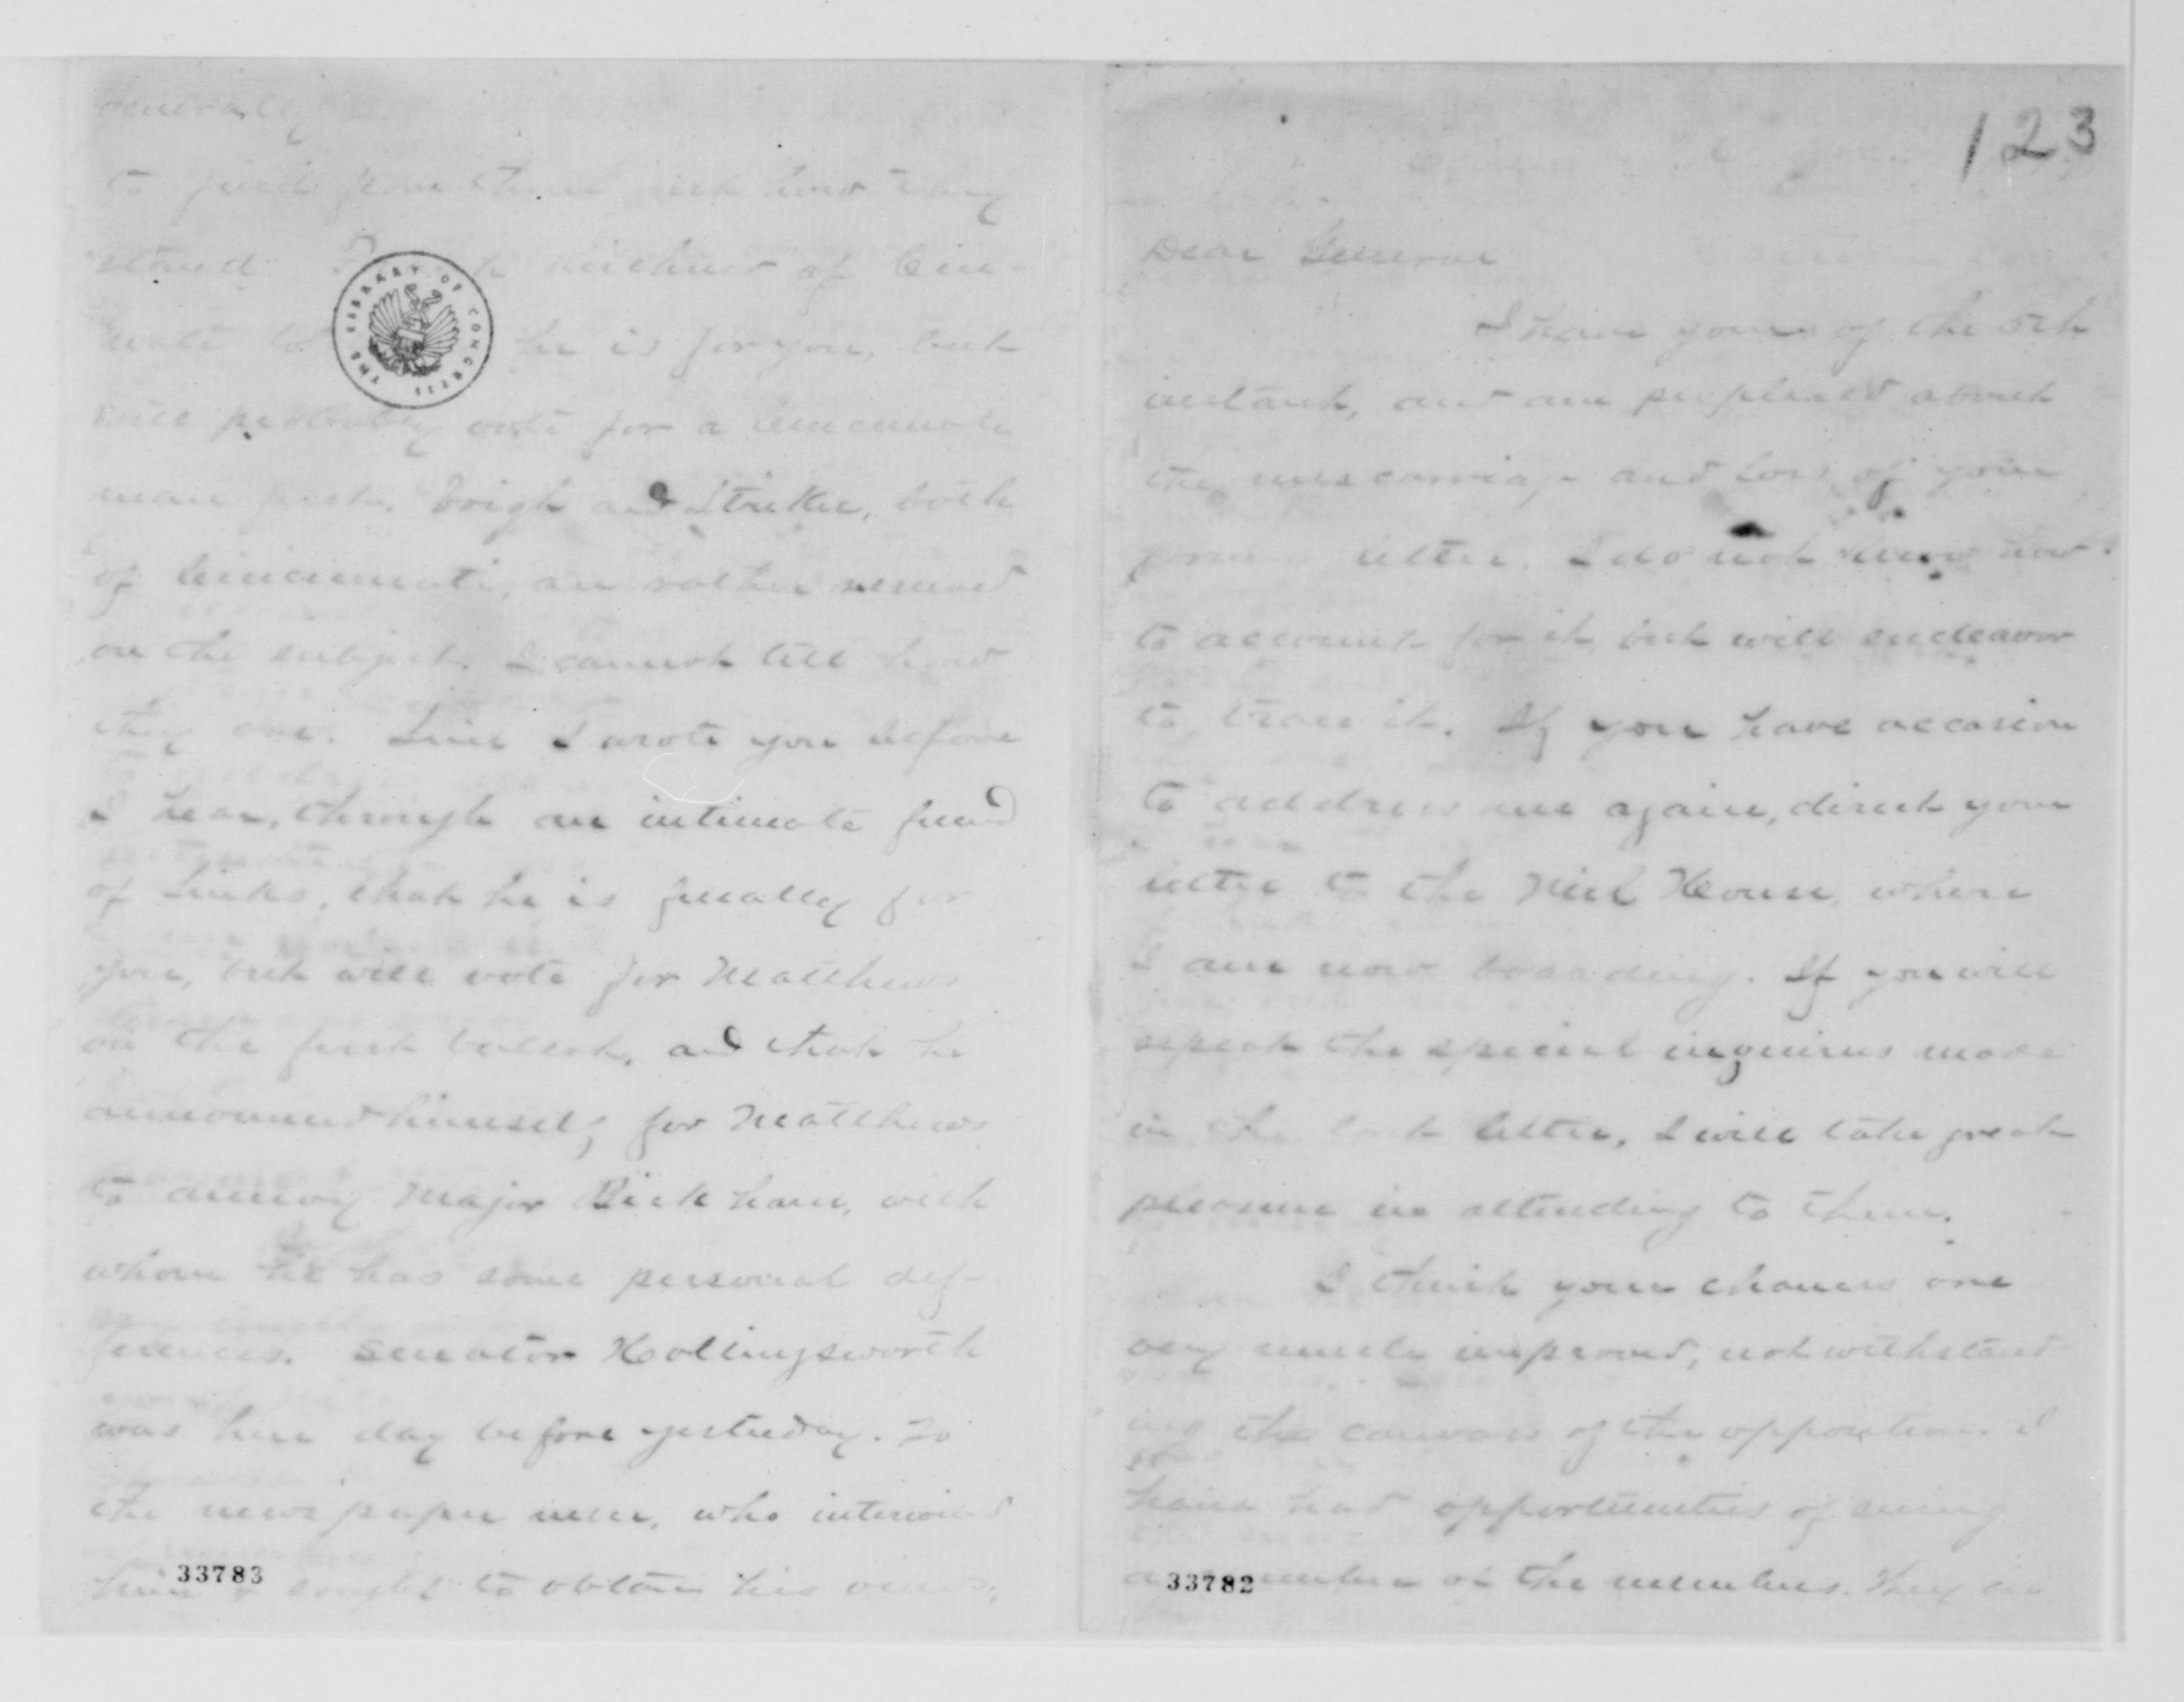 123
Dear General
I have yours of the 5th
instant, and am perplexed about
the miscarriage and loss of your
former letter. I do not know how
to account for it, but will endeavor
to trace it. If you have occasion
to address me again, direct your
letter to the Neil House, where
I am now boarding. If you will
repeat the special inquiries made
in the lost letter, I will take great
pleasure in attending to them.
I think your chances are
very much improved, notwithstand
ing the canvass of the opposition. I
have had opportunities of seeing
a number of the members. They are
33782
generally
to find from them just how they
stand. of Cin-
he is for you, but
will probably vote for a Cincinnati
man first. and both
of Cincinnati, are rather reserved
on the subject. I cannot tell how
they are. Since I wrote you before
I hear, through an intimate friend
of that he is finally for
you, but will vote for Matthews
on the first ballot, and that he
announced himself for Matthews
to annoy Major Bickham, with
whom he has some personal dif-
ferences. Senator Hollingsworth
was here day before yesterday. To
the newspaper men, who interviewed
him & sought to obtain his views,
33783
THE LIBRARY OF CONGRESS